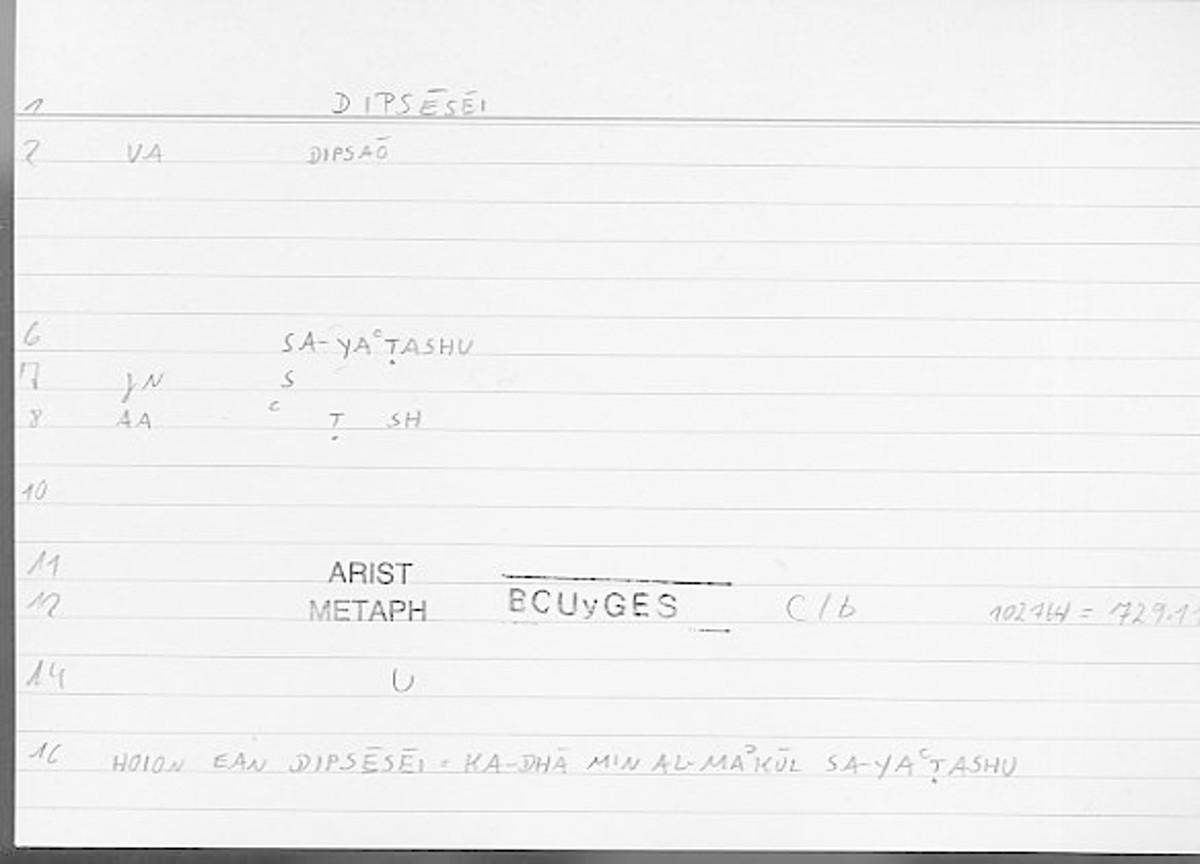 1 DIPSĒSĒI
2 VA DIPSAŌ
6 SA-YAᶜṬASHU
7 γN S
8 AA ᶜ Ṭ SH
10
11 ARIST
12 METAPH BCUyGES C/b = 729.1
14 U
16 HOION EAN DIPSĒSĒI = KA-DHĀ MIN AL-MAʾKŪL SA-YAᶜṬASHU